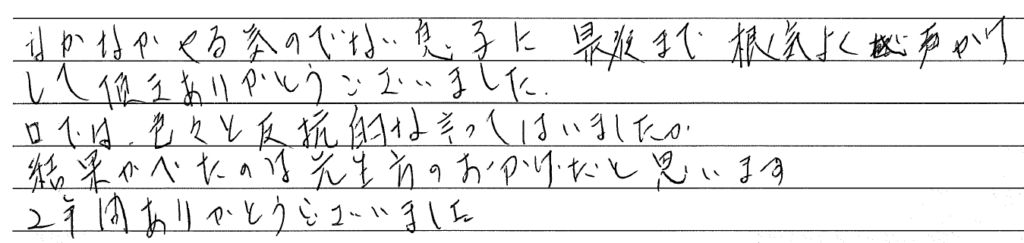 なかなかやる気のでない息子に 最後まで 根気よく声かけ
して頂きありがとうございました.
口では、色々と反抗的な言ってはいましたが
結果がでたのは先生方のおかげだと思います
2年間ありがとうございました